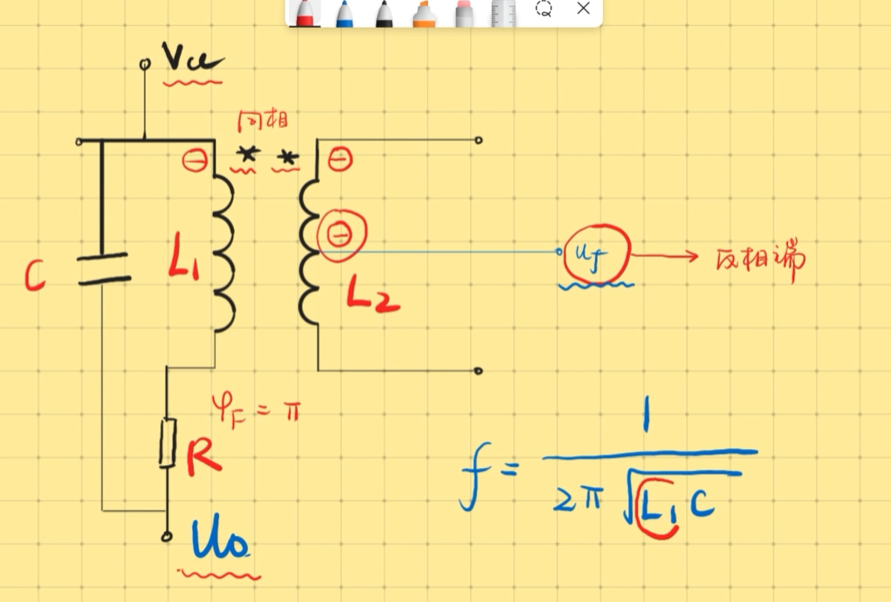 Vcc
同相
* *
⊖ ⊖
⊖
C L₁ L₂
u_f → 反相端
φ_F = π
R
U₀
f = 1 / (2π √(L₁C))